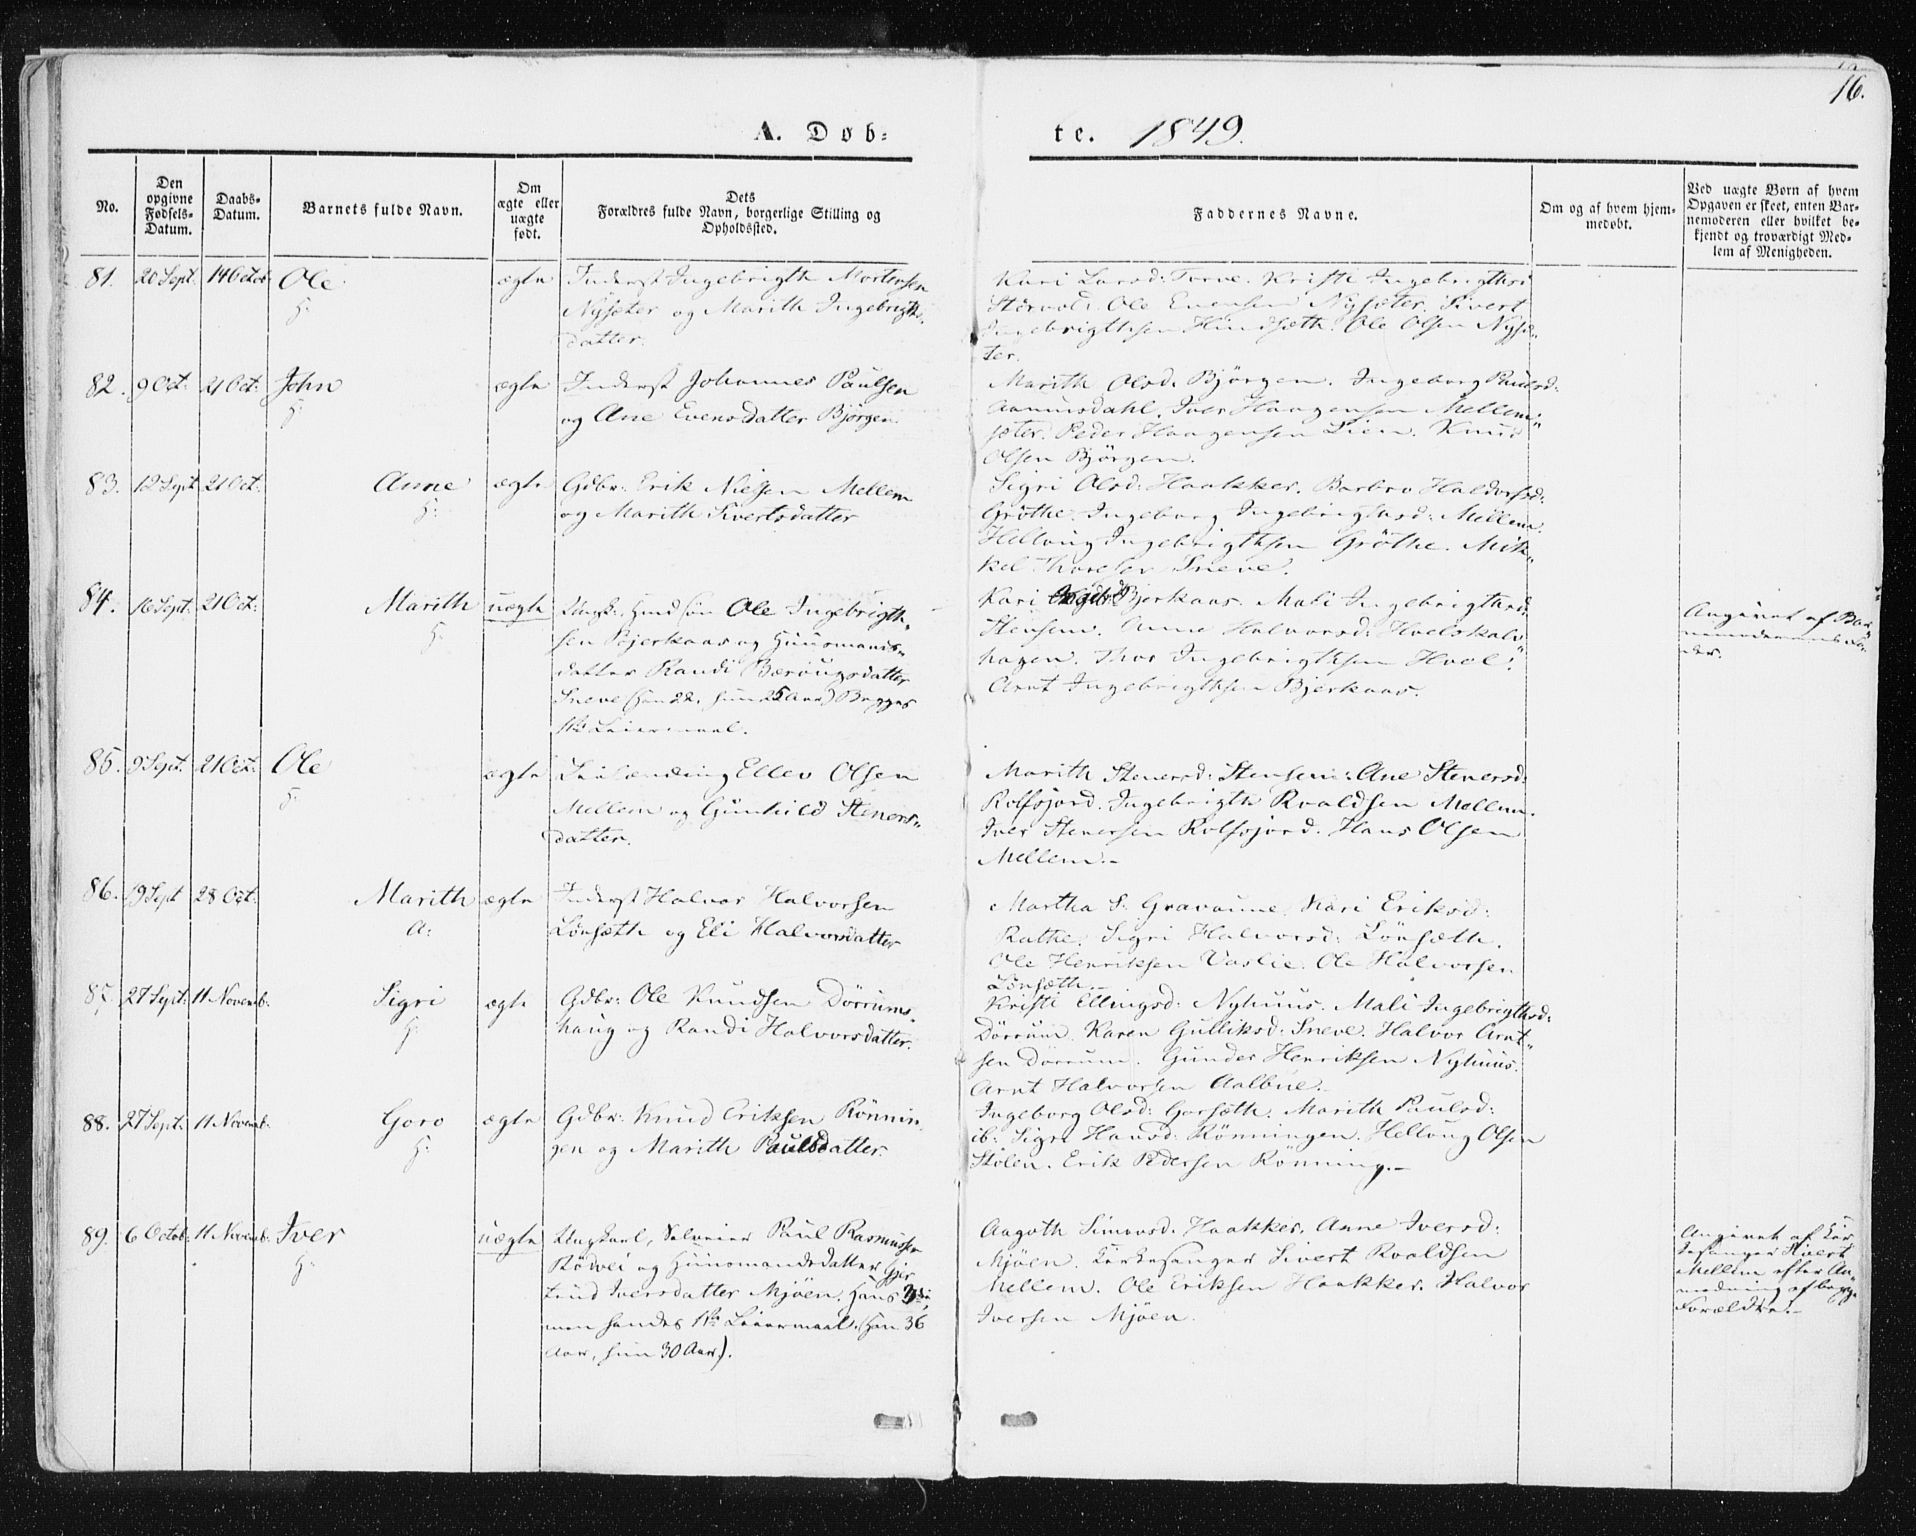 16.
A. Døb-
te. 1849.
No.
Den opgivne Fødsels-Datum.
Daabs-Datum.
Barnets fulde Navn.
Om ægte eller uægte født.
Dets Forældres fulde Navn, borgerlige Stilling og Opholdssted.
Faddernes Navne.
Om og af hvem hjem-medøbt.
Ved uægte Børn af hvem Opgaven er skeet, enten Bar-nemoderen eller hvilket be-kjendt og troværdigt Med-lem af Menigheden.
81. 20 Sept. 14 Octob. Ole ægte
H.
Inderst Ingebrigth Mortensen
Nysæter og Marith Ingebrigths-
datter.
Kari Larsd: Torve. Kristi Ingebrigthsd
Ole Evensen Nysæter. Sivert
Ingebrigthsen Hindsæth. Ole Olsen Nysæ-
ter.
82. 9 Oct: 21 Oct: John ægte
H:
Inderst Johannes Paulsen
og Ane Evensdatter Bjørgen.
Marith Olsd. Bjørgen. Ingeborg Paulsd:
Aamusdahl. Iver Haagensen Mellem-
sæter. Peder Haagensen Lien. Knud
Olsen Bjørgen.
83. 12 Sept 21 Oct: Anne ægte
H:
Gdbr: Erik Nielsen Mellem
og Marith Sivertsdatter
Sigri Olsd: Haakker. Barbro Haldorsd:
Grøthe. Ingeborg Ingebrigthsd: Mellem.
Hellvug Ingebrigthsen Grøthe. Mik-
kel Thoresen Sneve.
84. 16 Sept. 21 Oct: Marith uægte
H:
Ole Ingebrigth-
sen Bjerkaas og Huusmands-
datter Randi Bæraugsdatter
Sneve (han 22, hun 25 Aar) Begges
1ste Leiermaal.
Kari Bjerkaas. Mali Ingebrigthsd:
Stensem. Anne Halvorsd: Hoelskals-
hagen. Thor Ingebrigthsen Hoel.
Arnt Ingebrigthsen Bjerkaas.
Angivet af Bar-
nemoderens Fa-
der.
85. 9 Sept. 21 Oct: Ole ægte
H:
Leilænding Ellev Olsen
Mellem og Gunhild Steners-
datter.
Marith Stenersd: Stensem. Ane Stenersd:
Rolfsjord. Ingebrigth Roaldsen Mellem.
Iver Stenersen Rolfsjord. Hans Olsen
Mellem.-
86. 19 Sept 28 Oct: Marith ægte
A:
Inderst Halvor Halvorsen
Lønsæth og Eli Halvorsdatter
Martha S. Gravaune. Kari Eriksd:
Rathe. Sigri Halvorsd: Lønsæth.
Ole Henriksen Vaslie. Ole Halvorsen
Lønsæth.-
87. 27 Sept: 11 Novemb. Sigri ægte
H:
Gdbr: Ole Knudsen Dørrums-
haug og Randi Halvorsdatter.
Kristi Ellingsd: Nyhuus. Mali Ingebrigthsd:
Dørrum. Karen Gulliksd: Sneve. Halvor Arnt-
sen Dørrum. Gunder Henriksen Nyhuus.
Arnt Halvorsen Aalbue.
88. 27 Sept: 11 Novemb. Goro ægte
H:
Gdbr: Knud Eriksen Rønnin-
gen og Marith Paulsdatter.
Ingeborg Olsd: Gorsæth. Marith Paulsd:
ib: Sigri Hansd: Rønningen. Hellvug Olsen
Stølen. Erik Pedersen Rønning.-
89. 6 Octob: 11 Novemb. Iver uægte
H:
Ungkarl, Selveier Paul Rasmussen
Rødvei og Huusmandsdatter Gjer-
trud Iversdatter Mjøen. Hans 3die
men hendes 1ste Leiermaal. (Han 36
Aar, hun 30 Aar).
Aagoth Simonsd. Haakker. Anne Iversd:
Mjøen. Kirkesanger Sivert Roaldsen
Mellem. Ole Eriksen Haakker. Halvor
Iversen Mjøen.
Angivet af Kir-
kesanger Sivert
Mellem efter An-
modning af begge
Forældre.-